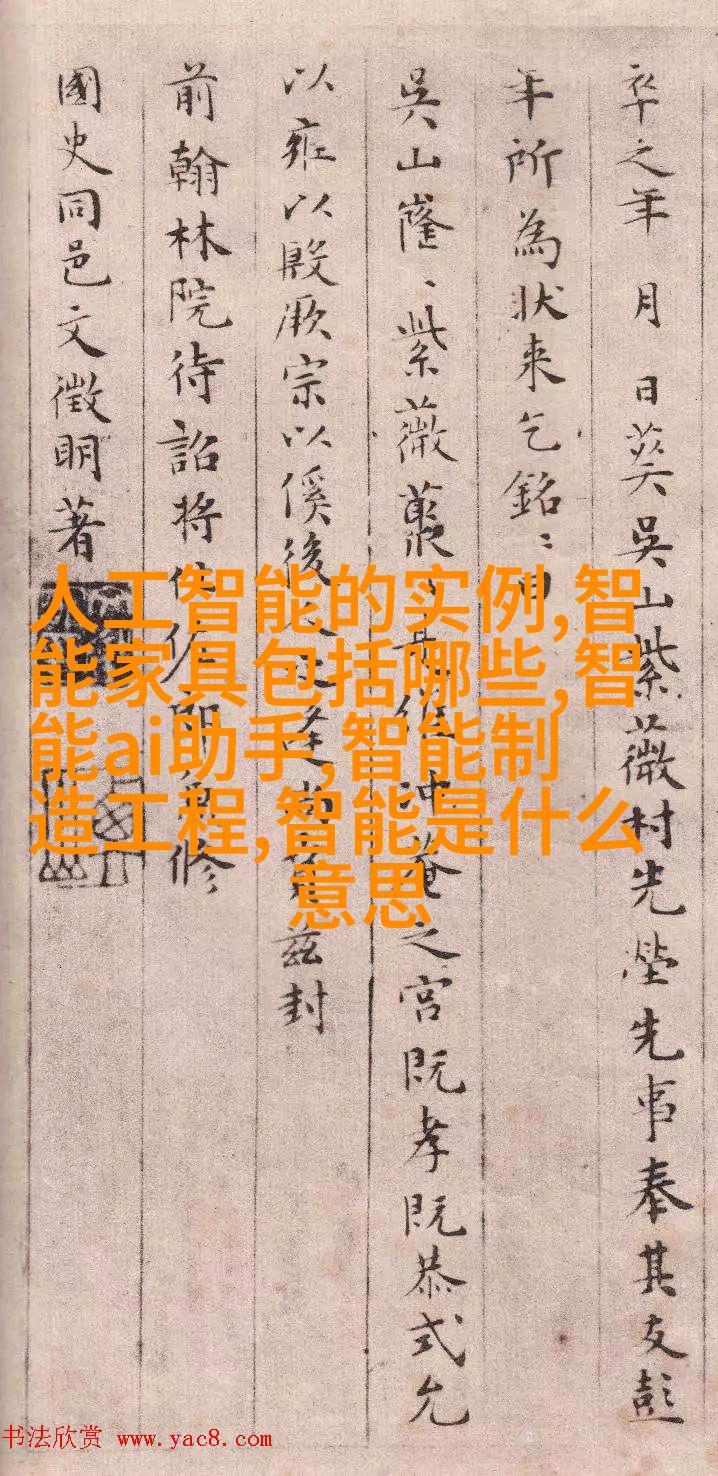 卒之年 月 日葬吳山紫薇村先塋先事奉其友彭
年所為狀来乞銘〻曰
吳山崔〻紫薇叢〻
之宮既孝既恭式允
以雍以殷厥宗以傒後人
兹封
前翰林院待詔將仕佐郎兼修
國史同邑文徵明著
人工智能的实例,智
能家具包括哪些,智
能ai助手,智能制
造工程,智能是什么
意思
书法欣赏 www.yac8.com